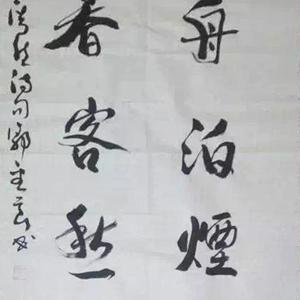 舟泊煙
暮客愁
浩然詩句郭